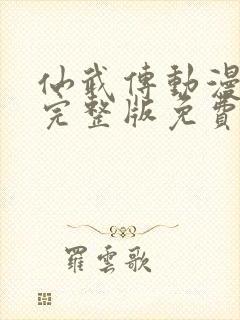 仙武傳動漫
完整版免費
羅雲歌